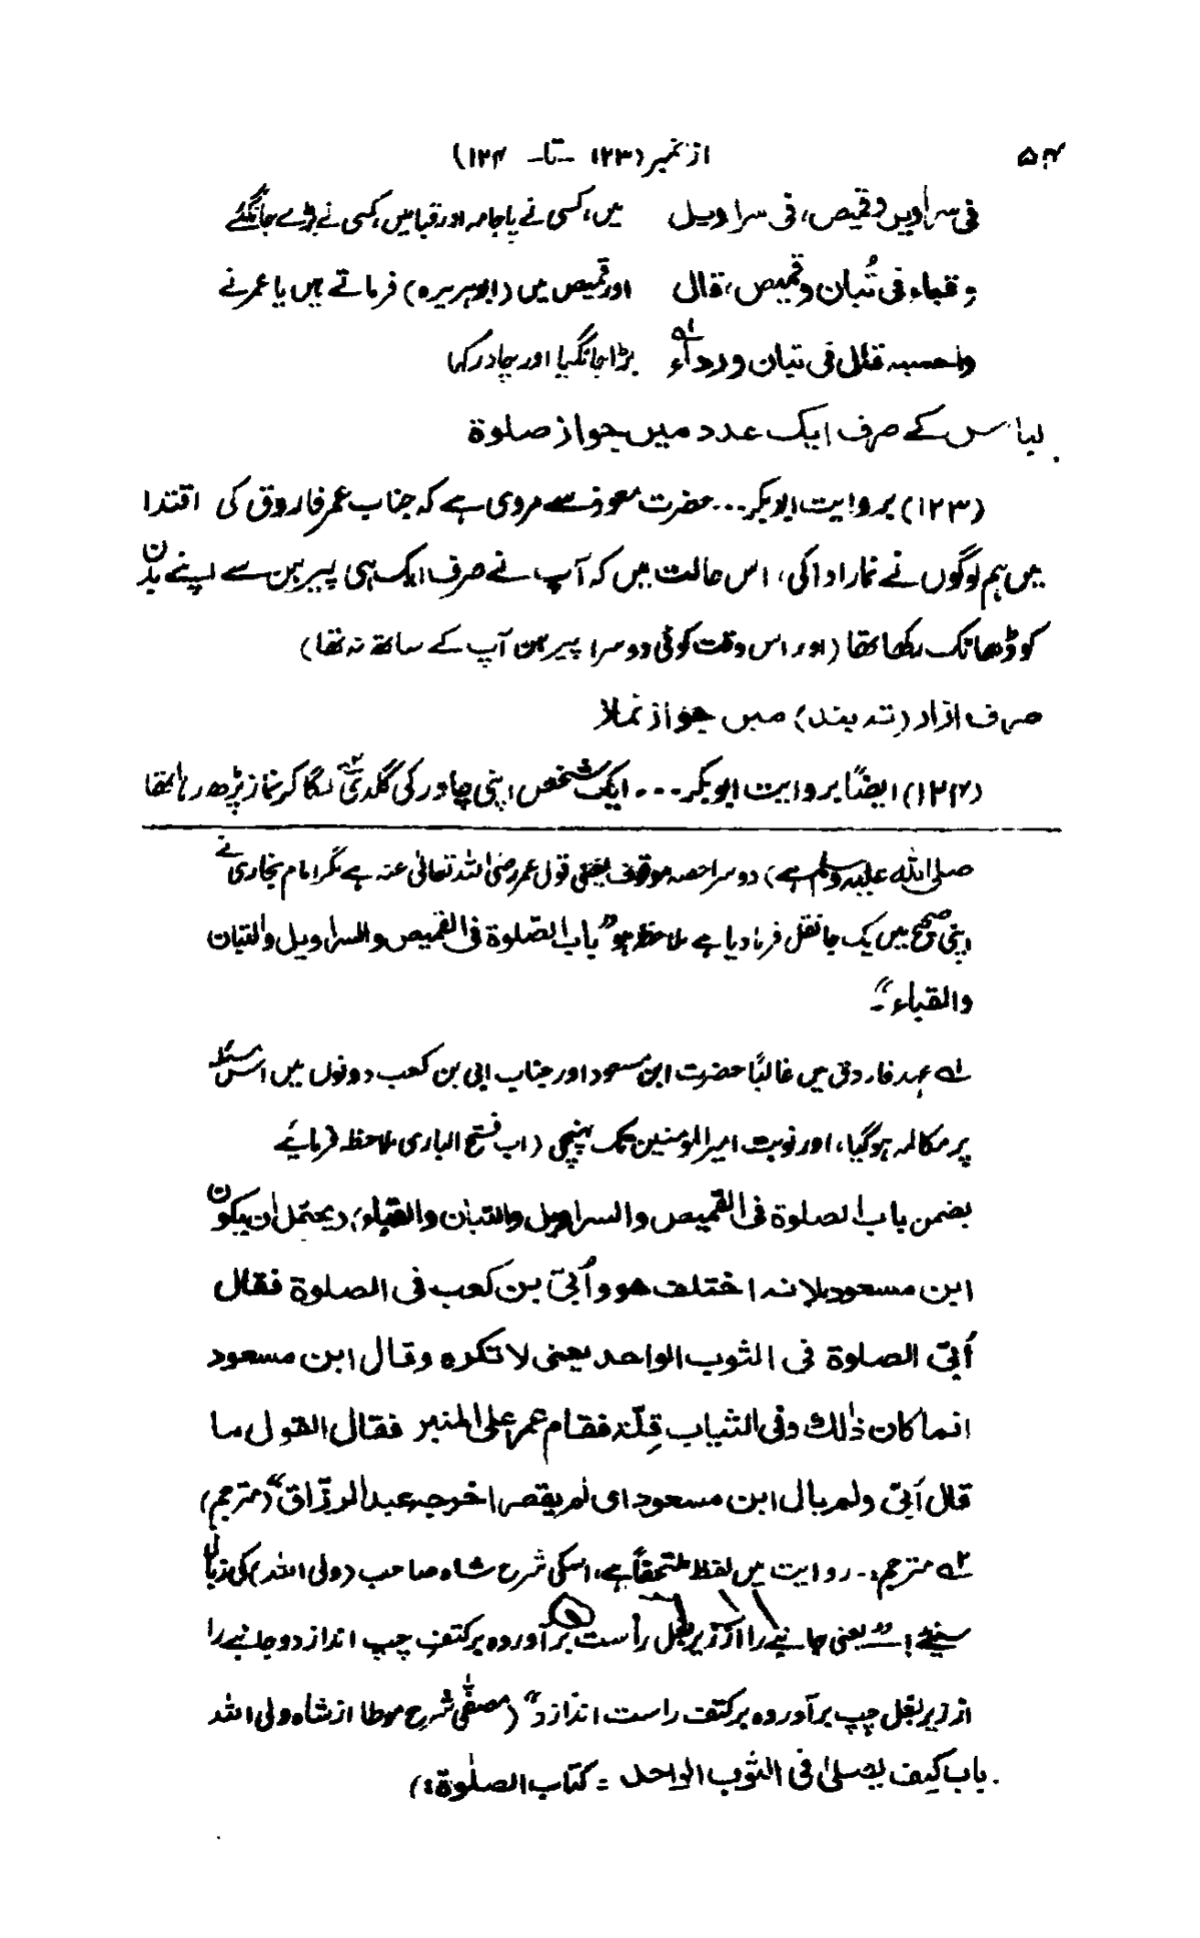 ۵۴ از نمبر (۱۲۳ - تا - ۱۲۴)
فی سراویل وقمیص، فی سراویل میں، کسی نے پاجامہ اور قبا میں، کسی نے بڑے جانگئے
وقباء، فی تُبان وقمیص، قال اور قمیص میں (ابوہریرہ) فرماتے ہیں یا عمر نے
واحسبہ قال فی تبان ورداء لہ بڑا جانگیا اور چادر کہا
لباس کے صرف ایک عدد میں جواز صلوٰۃ
(۱۲۳) بروایت ابوبکر... حضرت مسعود سے مروی ہے کہ جناب عمر فاروق کی اقتدا
میں ہم لوگوں نے نماز ادا کی، اس حالت میں کہ آپ نے صرف ایک ہی پیرہن سے اپنے بدن
کو ڈھانک رکھا تھا (اور اس وقت کوئی دوسرا پیرہن آپ کے ساتھ نہ تھا)
صرف ازار (تہ بند) میں جواز نماز
(۱۲۴) ایضاً بروایت ابوبکر... ایک شخص اپنی چادر کی گلدتی لگا کر نماز پڑھ رہا تھا
صلی اللہ علیہ وسلم ہے) دوسرا حصہ موقوف یعنی قول عمر رضی اللہ تعالیٰ عنہ ہے مگر امام بخاری نے
اپنی صحیح میں یک جا نقل فرما دیا ہے ملاحظہ ہو "باب الصّلوۃ فی القمیص والسراویل والتبان
والقباء"۔
لہ عہد فاروقی میں غالباً حضرت ابن مسعود اور جناب ابی بن کعب دونوں میں اس مسئلہ
پر مکالمہ ہوگیا، اور نوبت امیر المومنین تک پہنچی (اب فتح الباری ملاحظہ فرمائیے
بضمن باب الصلوۃ فی القمیص والسراویل والتبان والقباء) ویحتمل ان یکون
ابن مسعود لانہ اختلف ھو و اُبیّ بن کعب فی الصلوۃ فقال
اُبیّ الصلوۃ فی الثوب الواحد یعنی لا تکرہ وقال ابن مسعود
انما کان ذٰلک وفی الثیاب قِلّۃ فقام عمر علی المنبر فقال القول ما
قال اُبیّ ولم یال ابن مسعود ای لم یقصر اخرجہ عبد الرزّاق" (مترجم)
۲ہ مترجم:۔ روایت میں لفظ ملتحفاً ہے، اسکی شرح شاہ صاحب (ولی اللہ) کی زبانی
سنیئے! "یعنی جانبے را از زیر بغل راست بر آوردہ بر کتف چپ اندازد و جانبے را
از زیر بغل چپ برآوردہ بر کتف راست اندازد" (مصفّٰی شرح موطا از شاہ ولی اللہ
باب کیف یصلیٰ فی الثوب الواحد = کتاب الصلوٰۃ:)